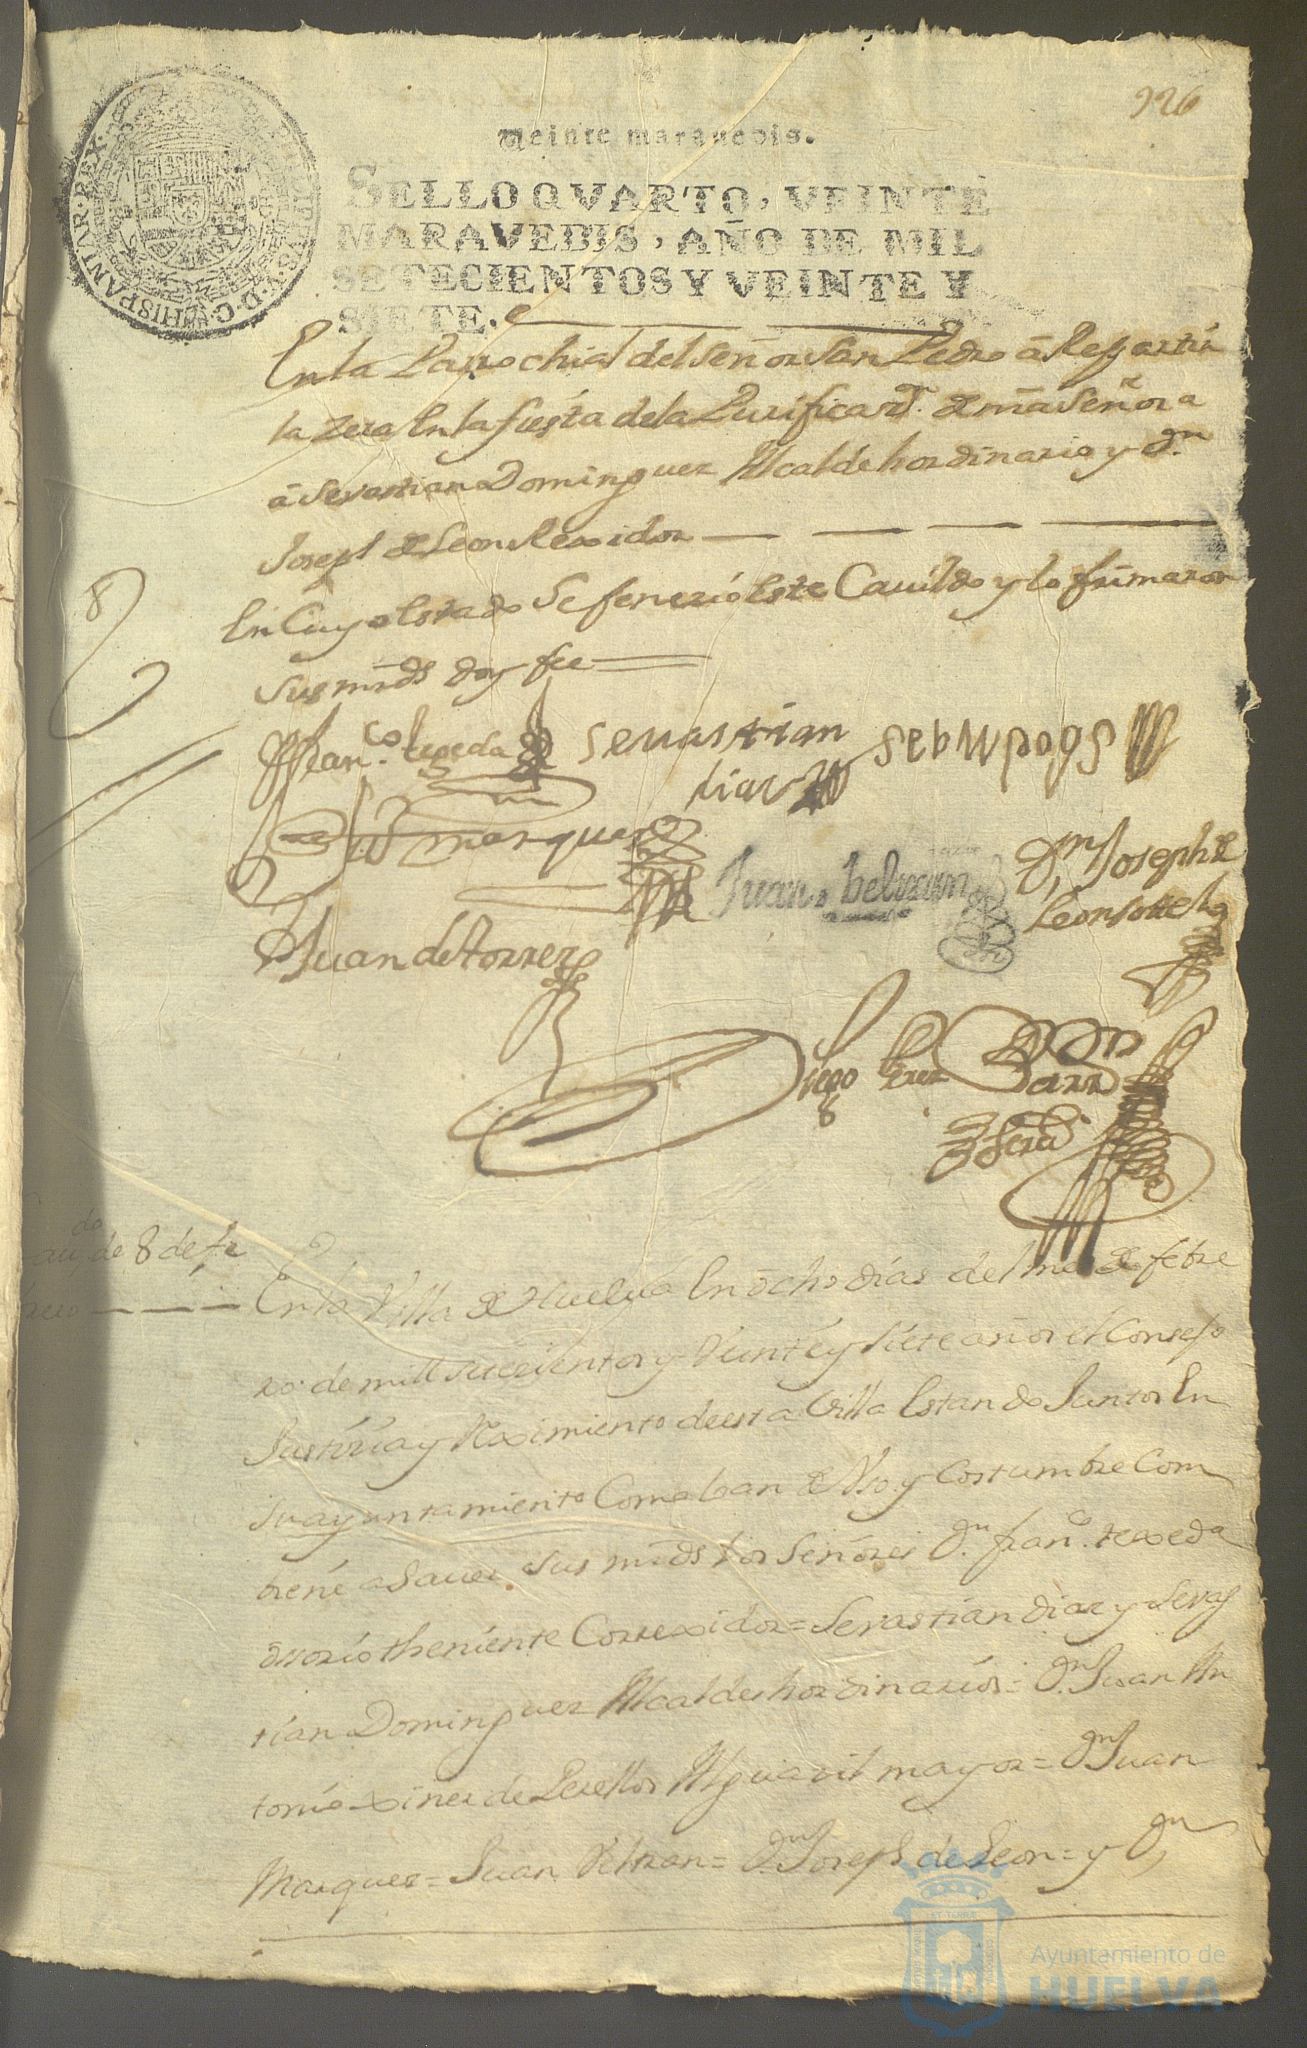 926
Veinte maravedis.
SELLO QVARTO, VEINTE
MARAVEDIS, AÑO DE MIL
SETECIENTOS Y VEINTE Y
SIETE.
HISPANIAR·REX·
En la Parrochial del señor San Pedro a Repartir
la zera En la fiesta de la Purificazn. de nra Señora
a Sevastian Dominguez Alcalde hordinario y Dn.
Joseph de Leon Rexidor
En Cuyo Estado Se fenezio Este Cavildo y lo firmaron
Sus mrds doy fee
Franco. texeda
sevastian
diaz
Juan marquez
Juan beltran
Dn. Joseph de
Leon
Juan de Torres
Diego Perez
de 8 de fe
brero
En la Villa de Huelva En ocho dias del mes de febre
ro de mill setezientos y Veinte y siete años el Consejo
Justizia y Reximiento de esta Villa Estando Juntos En
su ayuntamiento Como lo an de Vso y Costumbre Com
biene a Saver sus mrds los Señores Dn. Franco. texeda
osorio theniente Correxidor = Sevastian diaz y Sevas
tian Dominguez Alcaldes hordinarios = Dn. Juan An
tonio xinez de Perellos Alguazil mayor = Dn. Juan
Marquez = Juan Veltran = Dn. Joseph de Leon = y Dn.
Ayuntamiento de
HUELVA